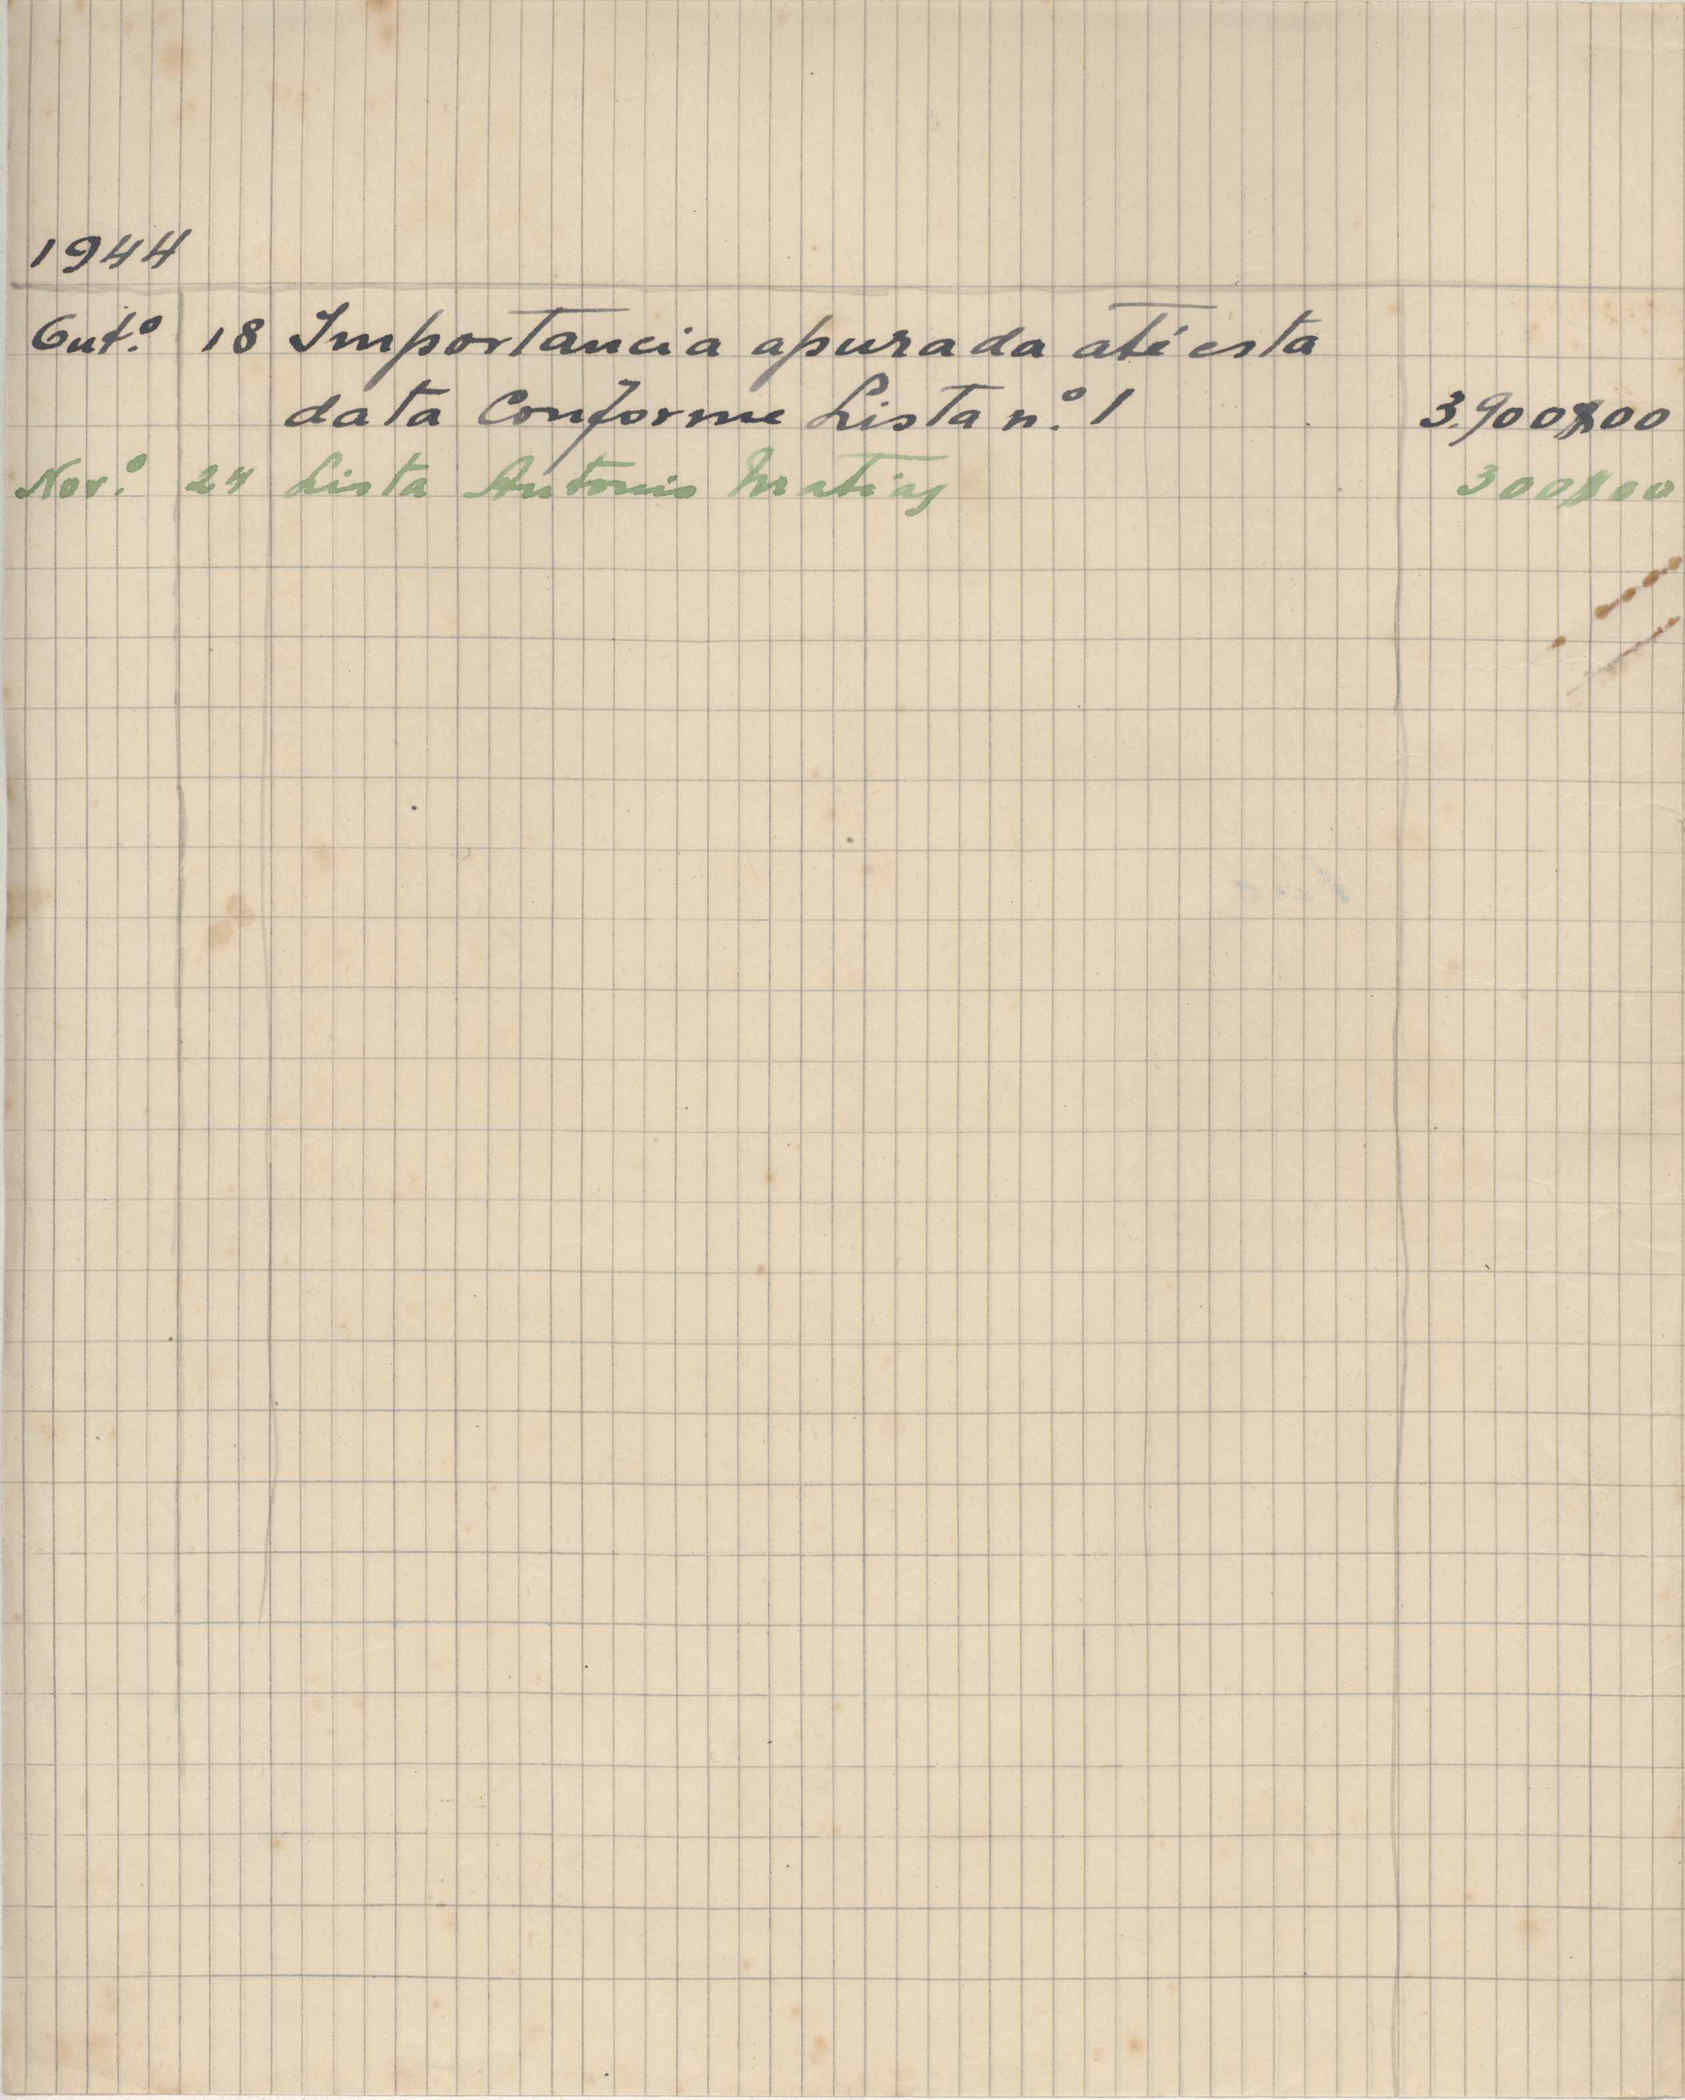 1944
Out.º 18 Importancia apurada até esta
data Conforme Lista n.º 1 3.900$00
Nov.º 24 Lista Antonio Matias 300$00